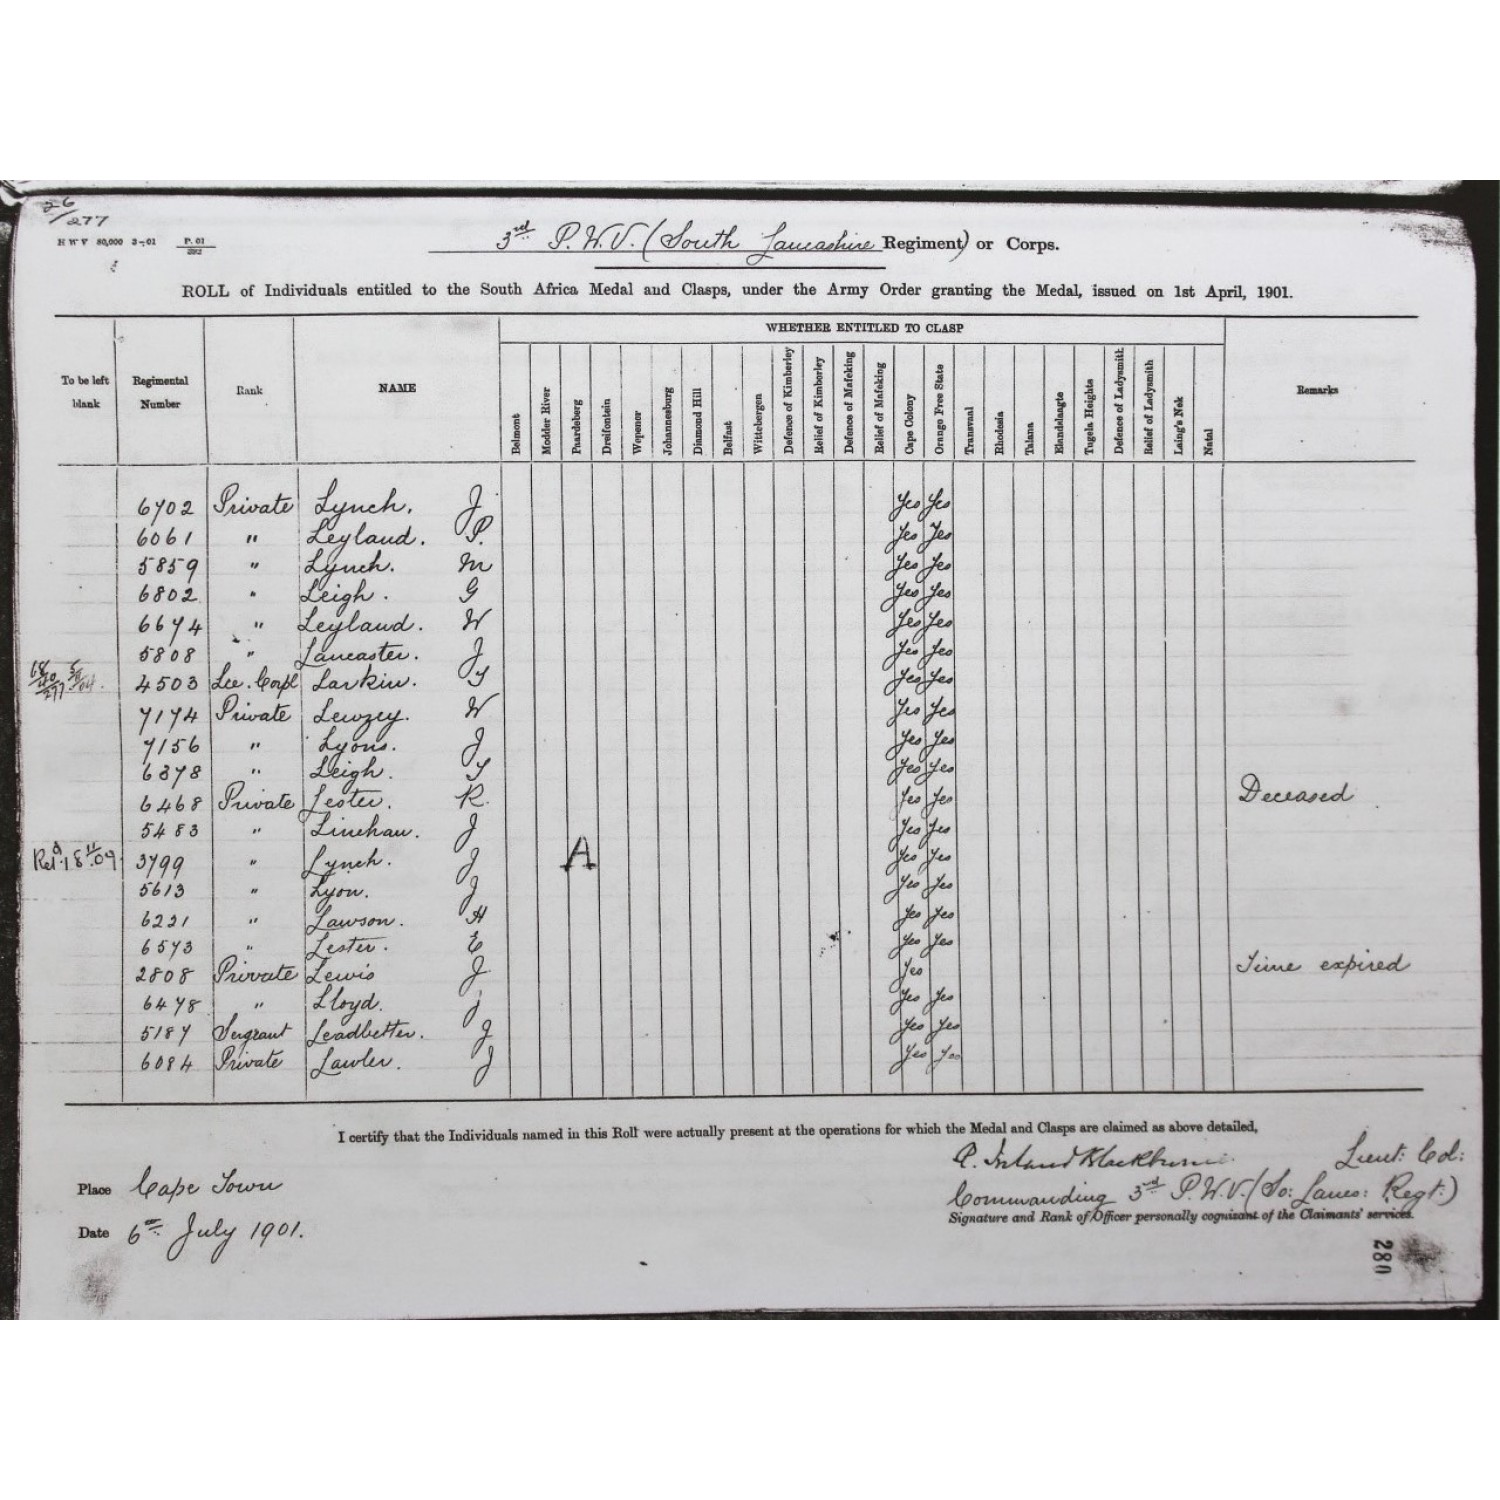 26/277
H W V 80,000 3-01 P. 01
3rd P.W.V. (South Lancashire Regiment) or Corps.
ROLL of Individuals entitled to the South Africa Medal and Clasps, under the Army Order granting the Medal, issued on 1st April, 1901.
WHETHER ENTITLED TO CLASP
To be left blank Regimental Number Rank NAME Belmont Modder River Paardeberg Dreifontein Wepener Johannesburg Diamond Hill Belfast Wittebergen Defence of Kimberley Relief of Kimberley Defence of Mafeking Relief of Mafeking Cape Colony Orange Free State Transvaal Rhodesia Talana Elandslaagte Tugela Heights Defence of Ladysmith Relief of Ladysmith Laing's Nek Natal Remarks
6702 Private Lynch. J Yes Yes
6061 " Leyland. P. Yes Yes
5859 " Lynch. M Yes Yes
6802 " Leigh. G Yes Yes
6674 " Leyland. W Yes Yes
5808 " Lancaster. J Yes Yes
4503 Lce. Corpl Larkin. T Yes Yes
7174 Private Lewzey. W Yes Yes
7156 " Lyons. J Yes Yes
6378 " Leigh. T Yes Yes
6468 Private Lester. R. Yes Yes Deceased
5483 " Linehan. J Yes Yes
Retd. 18.11.09 3799 " Lynch. J A Yes Yes
5613 " Lyon. J Yes Yes
6221 " Lawson. H Yes Yes
6573 " Lester. E Yes Yes
2808 Private Lewis J Yes Time expired
6478 " Lloyd. J Yes Yes
5187 Sergeant Leadbetter. J Yes Yes
6084 Private Lawler. J Yes Yes
I certify that the Individuals named in this Roll were actually present at the operations for which the Medal and Clasps are claimed as above detailed,
Blackburne Lieut: Col:
Place Cape Town
Commanding 3rd P.W.V. (So: Lancs: Regt:)
Signature and Rank of Officer personally cognizant of the Claimants' services.
Date 6th July 1901.
280